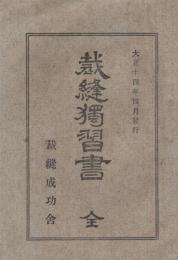 大正十四年四月發行
裁縫獨習書 全
裁縫成功舍